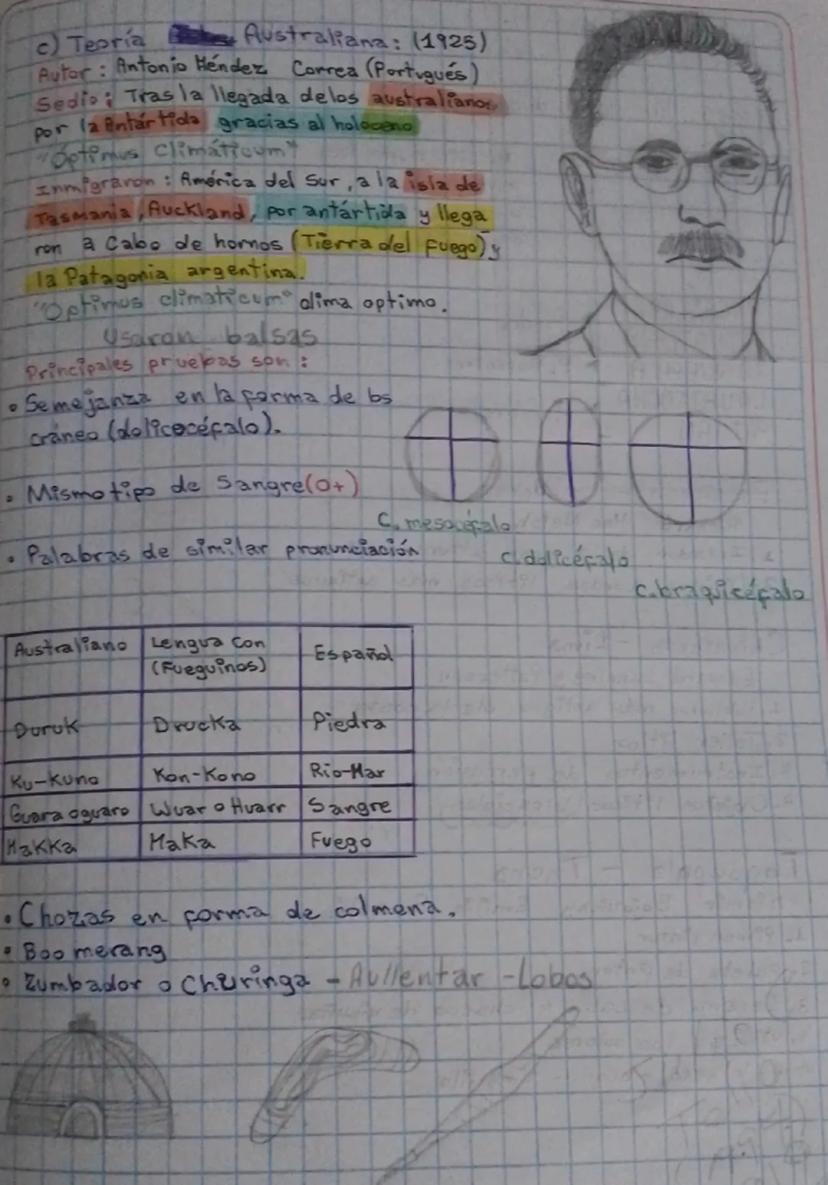 c) Teoría Australiana: (1925)
Autor: Antonio Méndez Correa (Portugués)
Sedio: Tras la llegada delos australianos
por la Antártida gracias al holoceno
"Optimus climáticum"
Inmigraron: América del Sur, a la isla de
Tasmania, Auckland, por antártida y llega
ron a Cabo de hornos (Tierra del fuego) y
la Patagonia argentina.
"Optimus climaticum" clima optimo.
Usaron balsas
Principales pruebas son:
• Semejanza en la forma de los
cráneo (dolicocéfalo).
• Mismo tipo de Sangre (O+)
C. mesocéfalo
• Palabras de similar pronunciación
c. dolicéfalo
c. braquicéfalo
Australiano Lengua con (Fueguinos) Español
Duruk Drucka Piedra
Ku-Kuno Kon-Kono Rio-Mar
Guara oguaro Wuar o Huarr Sangre
Makka Maka Fuego
• Chozas en forma de colmena.
• Boomerang
• Zumbador o Churinga - Aullentar - Lobos